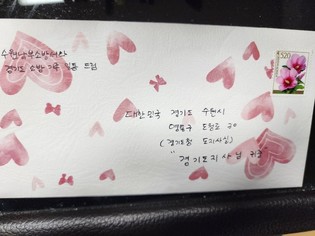 수원남부소방서와
경기도 소방 가족 일동 드림
520
대한민국 경기도 수원시
팔달구 도청로 구
(경기도청 도지사실)
"경기도지사님 귀하